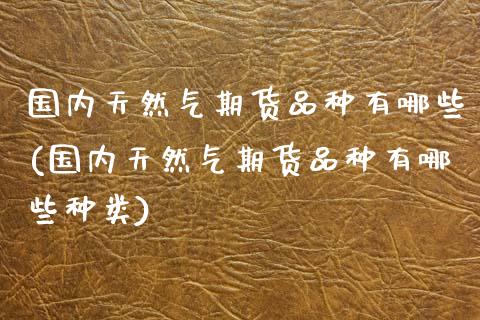 国内天然气期货品种有哪些
(国内天然气期货品种有哪
些种类)